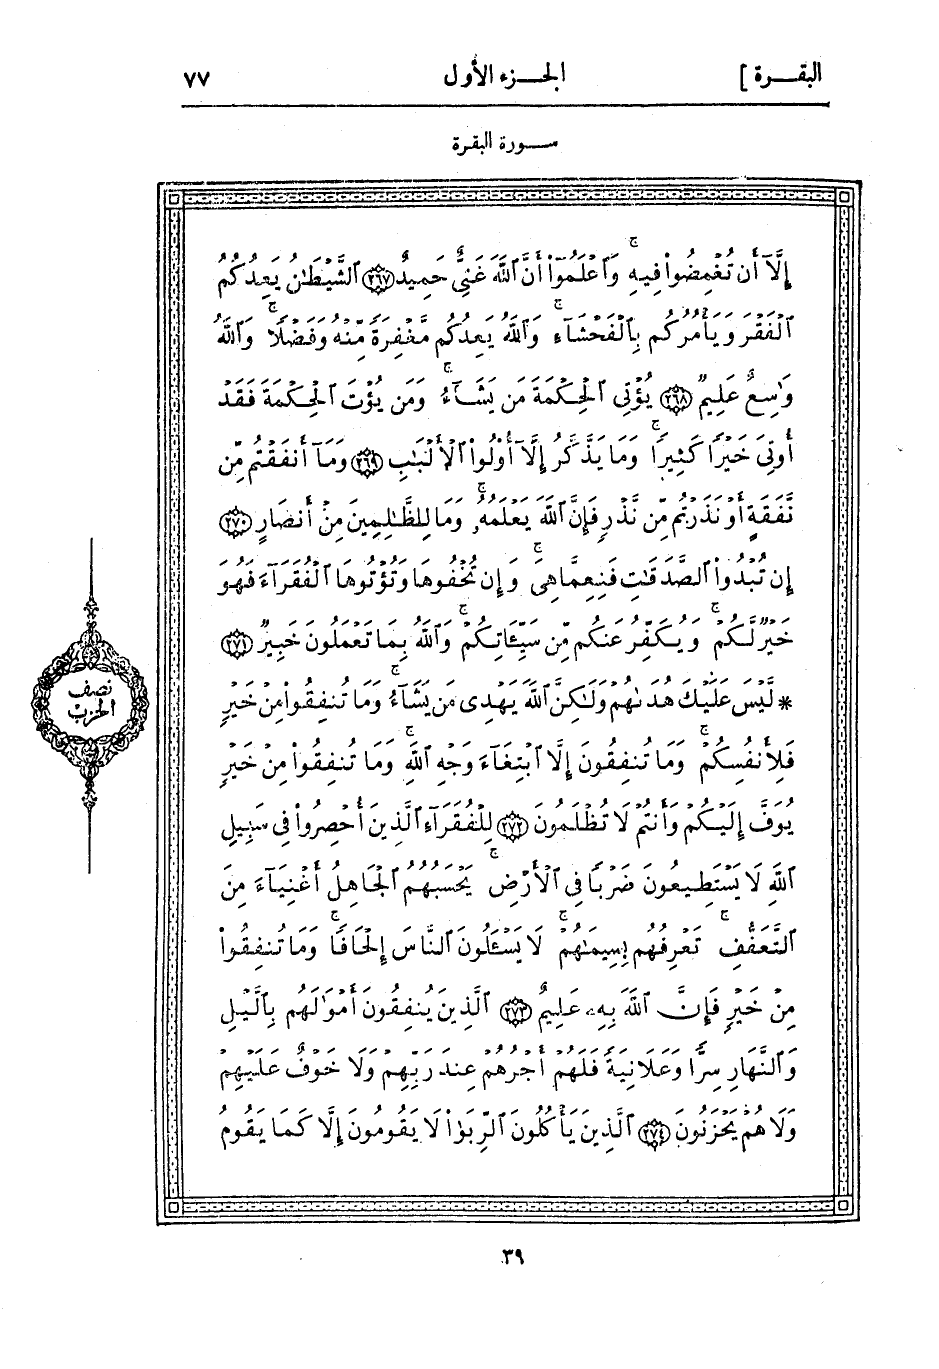 البقرة ] الجزء الأول ٧٧
سورة البقرة
إِلَّآ أَن تُغْمِضُوا۟ فِيهِ ۚ وَٱعْلَمُوٓا۟ أَنَّ ٱللَّهَ غَنِىٌّ حَمِيدٌ ٢٦٧ ٱلشَّيْطَـٰنُ يَعِدُكُمُ
ٱلْفَقْرَ وَيَأْمُرُكُم بِٱلْفَحْشَآءِ ۖ وَٱللَّهُ يَعِدُكُم مَّغْفِرَةً مِّنْهُ وَفَضْلًا ۗ وَٱللَّهُ
وَٰسِعٌ عَلِيمٌ ٢٦٨ يُؤْتِى ٱلْحِكْمَةَ مَن يَشَآءُ ۚ وَمَن يُؤْتَ ٱلْحِكْمَةَ فَقَدْ
أُوتِىَ خَيْرًا كَثِيرًا ۗ وَمَا يَذَّكَّرُ إِلَّآ أُو۟لُوا۟ ٱلْأَلْبَـٰبِ ٢٦٩ وَمَآ أَنفَقْتُم مِّن
نَّفَقَةٍ أَوْ نَذَرْتُم مِّن نَّذْرٍ فَإِنَّ ٱللَّهَ يَعْلَمُهُۥ ۗ وَمَا لِلظَّـٰلِمِينَ مِنْ أَنصَارٍ ٢٧٠
إِن تُبْدُوا۟ ٱلصَّدَقَـٰتِ فَنِعِمَّا هِىَ ۖ وَإِن تُخْفُوهَا وَتُؤْتُوهَا ٱلْفُقَرَآءَ فَهُوَ
خَيْرٌ لَّكُمْ ۚ وَيُكَفِّرُ عَنكُم مِّن سَيِّـَٔاتِكُمْ ۗ وَٱللَّهُ بِمَا تَعْمَلُونَ خَبِيرٌ ٢٧١
* لَّيْسَ عَلَيْكَ هُدَىٰهُمْ وَلَـٰكِنَّ ٱللَّهَ يَهْدِى مَن يَشَآءُ ۗ وَمَا تُنفِقُوا۟ مِنْ خَيْرٍ
فَلِأَنفُسِكُمْ ۚ وَمَا تُنفِقُونَ إِلَّا ٱبْتِغَآءَ وَجْهِ ٱللَّهِ ۚ وَمَا تُنفِقُوا۟ مِنْ خَيْرٍ
يُوَفَّ إِلَيْكُمْ وَأَنتُمْ لَا تُظْلَمُونَ ٢٧٢ لِلْفُقَرَآءِ ٱلَّذِينَ أُحْصِرُوا۟ فِى سَبِيلِ
ٱللَّهِ لَا يَسْتَطِيعُونَ ضَرْبًا فِى ٱلْأَرْضِ ۚ يَحْسَبُهُمُ ٱلْجَاهِلُ أَغْنِيَآءَ مِنَ
ٱلتَّعَفُّفِ ۚ تَعْرِفُهُم بِسِيمَـٰهُمْ ۚ لَا يَسْـَٔلُونَ ٱلنَّاسَ إِلْحَافًا ۗ وَمَا تُنفِقُوا۟
مِنْ خَيْرٍ فَإِنَّ ٱللَّهَ بِهِۦ عَلِيمٌ ٢٧٣ ٱلَّذِينَ يُنفِقُونَ أَمْوَٰلَهُم بِٱلَّيْلِ
وَٱلنَّهَارِ سِرًّا وَعَلَانِيَةً فَلَهُمْ أَجْرُهُمْ عِندَ رَبِّهِمْ وَلَا خَوْفٌ عَلَيْهِمْ
وَلَا هُمْ يَحْزَنُونَ ٢٧٤ ٱلَّذِينَ يَأْكُلُونَ ٱلرِّبَوٰا۟ لَا يَقُومُونَ إِلَّا كَمَا يَقُومُ
نصف
الحزب
٣٩